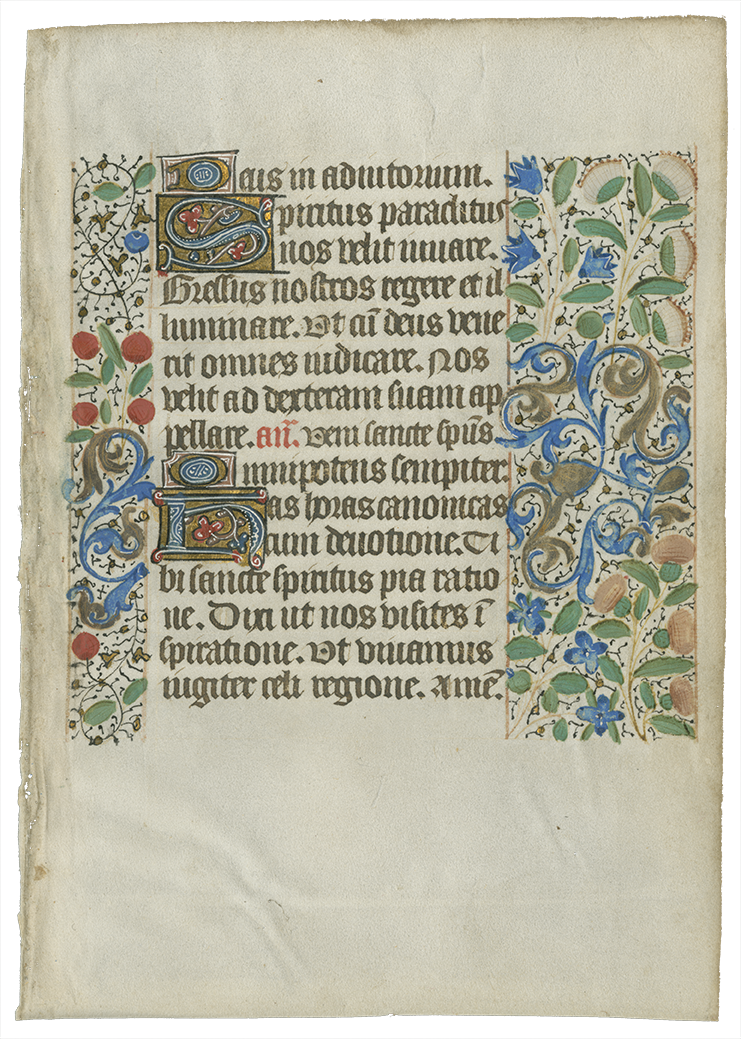 Deus in adiutorium.
Spiritus paraclitus
nos velit iuuare.
Gressus nostros regere et il
luminare. Vt cū deus vene
rit omnes iudicare. Nos
velit ad dexteram suam ap
pellare. añ. Veni sancte spūs.
Omnipotens sempiter.
Has horas canonicas
cum deuotione. Ti
bi sancte spiritus pia ratio
ne. Dixi ut nos visites ī
spiratione. Vt viuamus
iugiter celi regione. Amē.